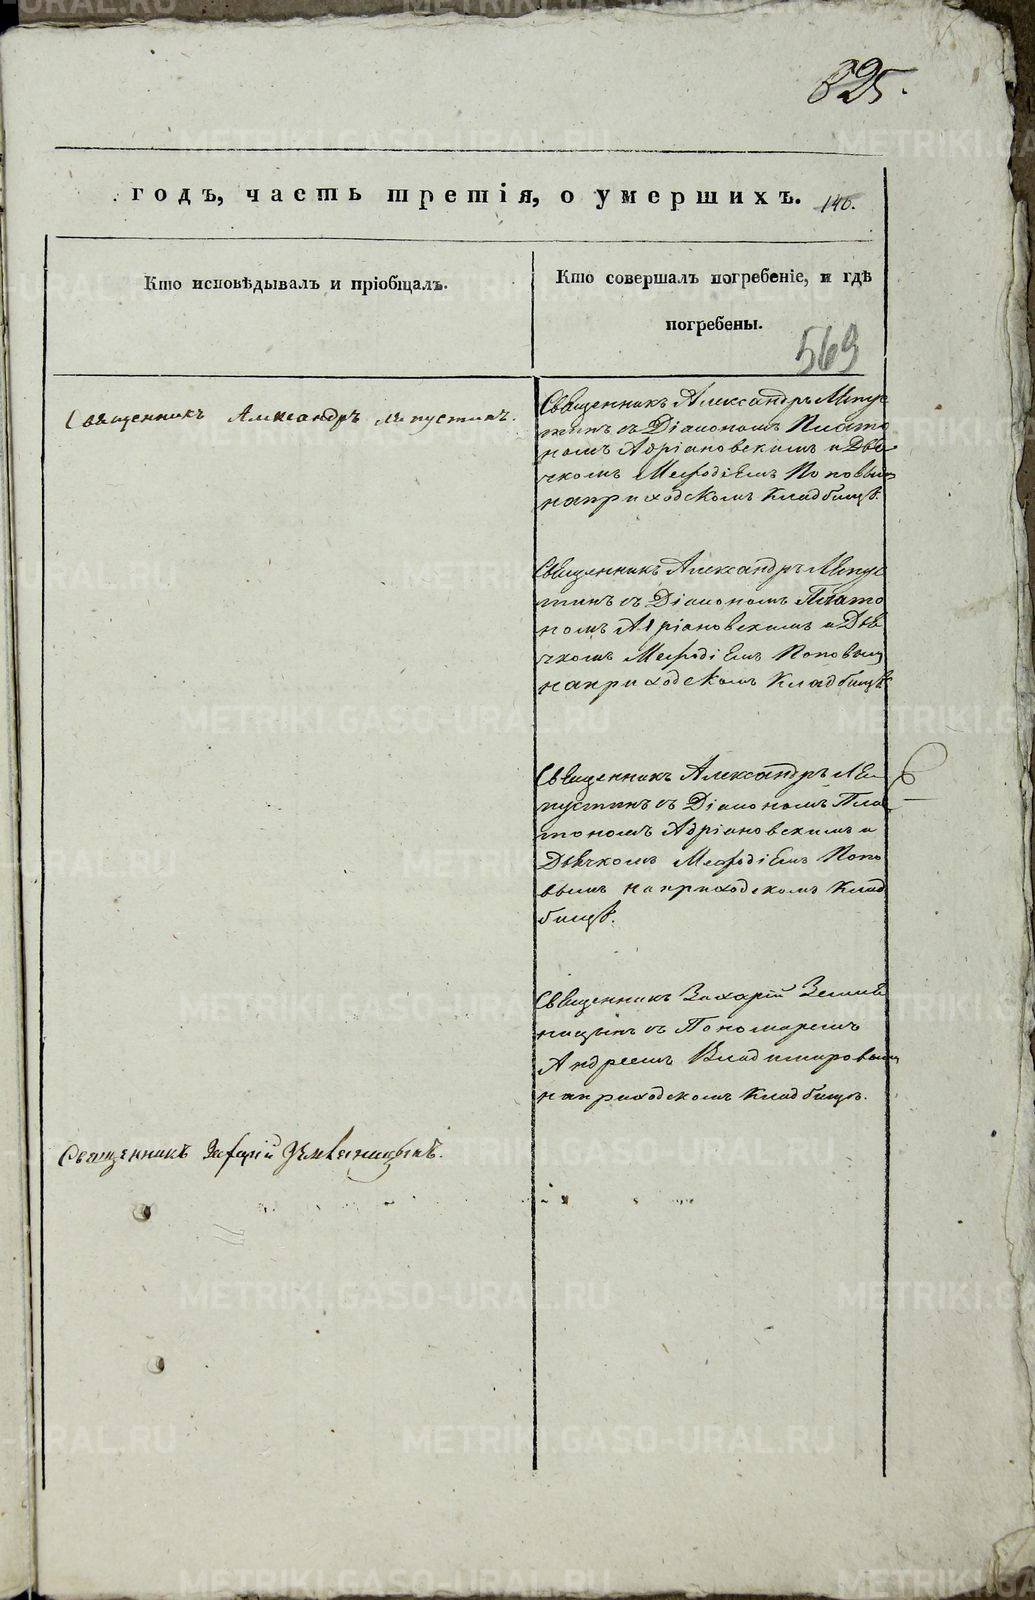 825.
годъ, часть третія, о умершихъ. 146.
Кто исповѣдывалъ и пріобщалъ.
Кто совершалъ погребеніе, и гдѣ
погребены.
569
Священникъ Александръ Лепустинъ.
Священникъ Александръ Лепус
тинъ съ Діакономъ Плато
номъ Адріановскимъ и Дья
чкомъ Мефодіемъ Поповымъ
на приходскомъ кладбищѣ.
Священникъ Александръ Лепус
тинъ съ Діакономъ Плато
номъ Адріановскимъ и Дья
чкомъ Мефодіемъ Поповымъ
на приходскомъ кладбищѣ
Священникъ Александръ Ле
пустинъ съ Діакономъ Пла
тономъ Адріановскимъ и
Дьячкомъ Мефодіемъ Попо
вымъ на приходскомъ клад
бищѣ.
Священникъ Захарій Земля
ницынъ съ Пономаремъ
Андреемъ Владимировымъ
на приходскомъ кладбищѣ.
Священникъ Захарій Земляницынъ.
METRIKI.GASO-URAL.RU